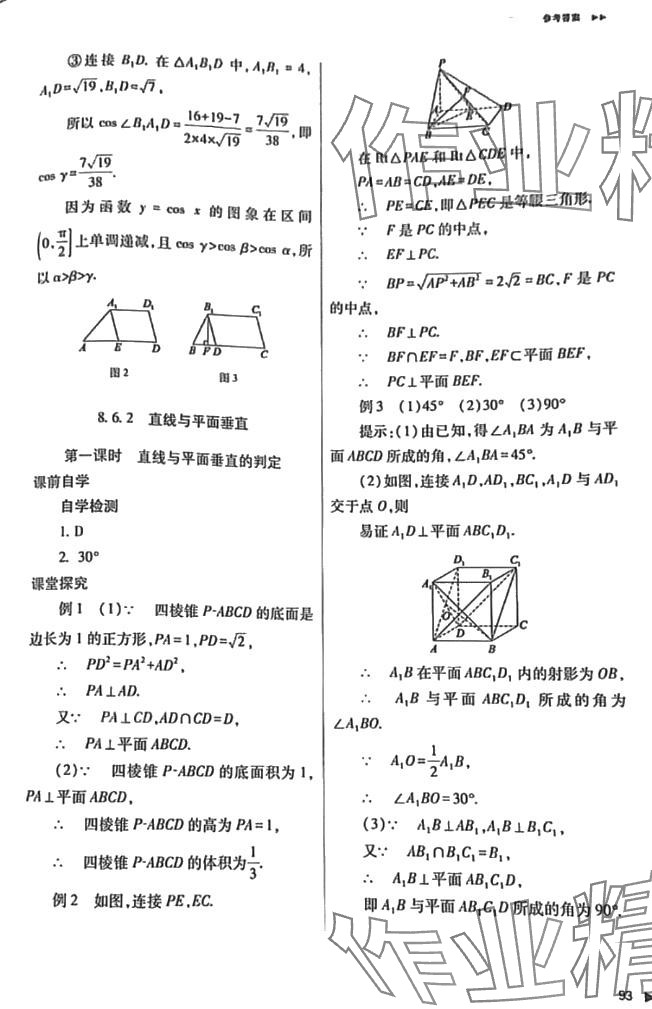 参考答案
③连接 B₁D. 在 △A₁B₁D 中,A₁B₁ = 4,
A₁D=√19,B₁D=√7,
所以 cos∠B₁A₁D=(16+19-7)/(2×4×√19)=7√19/38,即
cos γ=7√19/38.
因为函数 y = cos x 的图象在区间
(0,π/2]上单调递减,且 cos γ>cos β>cos α,所
以 α>β>γ.
A₁ D₁
A E D
图2
B₁ C₁
B F D C
图3
8.6.2 直线与平面垂直
第一课时 直线与平面垂直的判定
课前自学
自学检测
1. D
2. 30°
课堂探究
例1 (1)∵ 四棱锥 P-ABCD 的底面是
边长为 1 的正方形,PA=1,PD=√2,
∴ PD²=PA²+AD²,
∴ PA⊥AD.
又∵ PA⊥CD,AD∩CD=D,
∴ PA⊥平面 ABCD.
(2)∵ 四棱锥 P-ABCD 的底面积为 1,
PA⊥平面 ABCD,
∴ 四棱锥 P-ABCD 的高为 PA=1,
∴ 四棱锥 P-ABCD 的体积为1/3.
例2 如图,连接 PE,EC.
P
F
A D
E
B C
在 Rt△PAE 和 Rt△CDE 中,
PA=AB=CD,AE=DE,
∴ PE=CE,即△PEC 是等腰三角形.
∵ F 是 PC 的中点,
∴ EF⊥PC.
∵ BP=√(AP²+AB²)=2√2=BC,F 是 PC
的中点,
∴ BF⊥PC.
∵ BF∩EF=F,BF,EF⊂平面 BEF,
∴ PC⊥平面 BEF.
例3 (1)45° (2)30° (3)90°
提示:(1)由已知,得∠A₁BA 为 A₁B 与平
面 ABCD 所成的角,∠A₁BA=45°.
(2)如图,连接 A₁D,AD₁,BC₁,A₁D 与 AD₁
交于点 O,则
易证 A₁D⊥平面 ABC₁D₁.
D₁ C₁
A₁ B₁
O
D C
A B
∴ A₁B 在平面 ABC₁D₁ 内的射影为 OB,
∴ A₁B 与平面 ABC₁D₁ 所成的角为
∠A₁BO.
∵ A₁O=1/2A₁B,
∴ ∠A₁BO=30°.
(3)∵ A₁B⊥AB₁,A₁B⊥B₁C₁,
又∵ AB₁∩B₁C₁=B₁,
∴ A₁B⊥平面 AB₁C₁D,
即 A₁B 与平面 AB₁C₁D 所成的角为 90°.
作业精
作业精
93